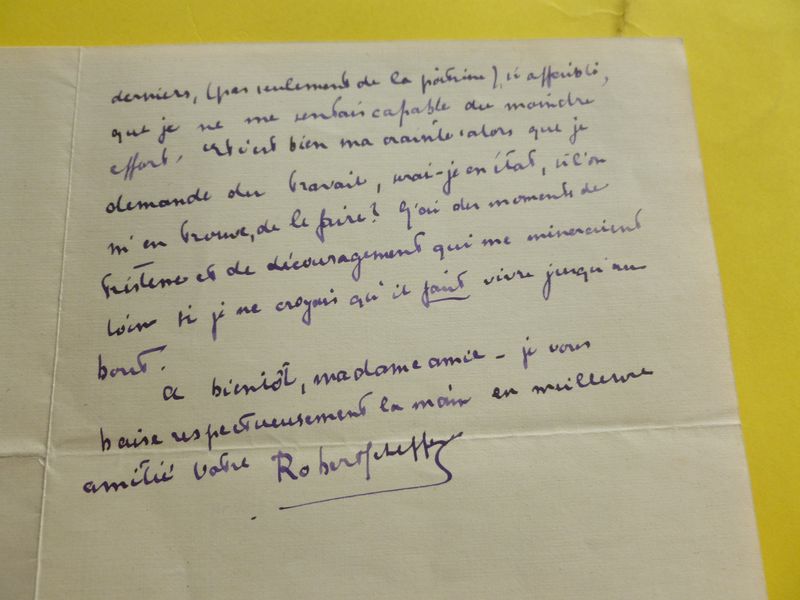 derniers, (pas seulement de la poitrine), si affaibli,
que je ne me sentais capable du moindre
effort. Et c'est bien ma crainte : alors que je
demande du travail, serai-je en état, si l'on
m'en trouve, de le faire? J'ai des moments de
tristesse et de découragement qui me mineraient
loin si je ne croyais qu'il faut vivre jusqu'au
bout.
A bientôt, madame amie - je vous
baise respectueusement la main en meilleure
amitié votre Robert Scheffer